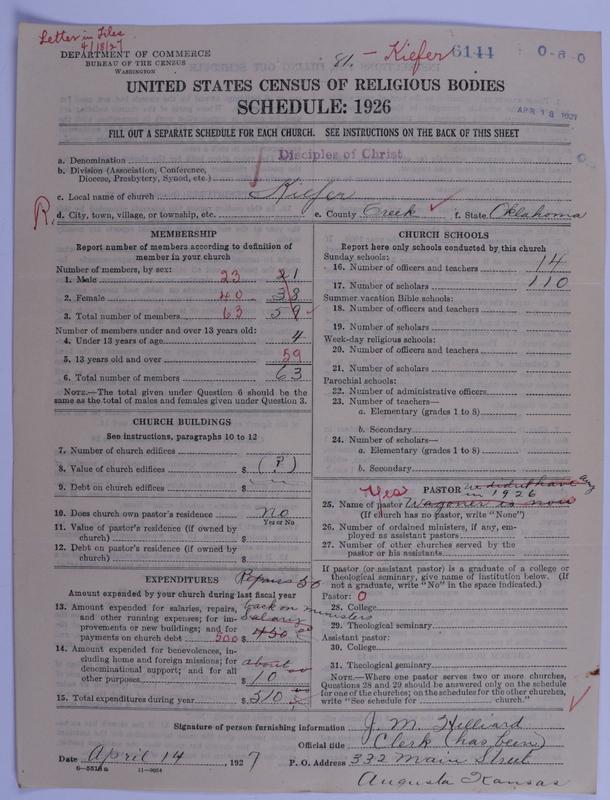 Letter in Files
4/18/27
81. - Kiefer 6144 0-8-0
DEPARTMENT OF COMMERCE
BUREAU OF THE CENSUS
WASHINGTON
UNITED STATES CENSUS OF RELIGIOUS BODIES
SCHEDULE: 1926
APR 18 1927
FILL OUT A SEPARATE SCHEDULE FOR EACH CHURCH. SEE INSTRUCTIONS ON THE BACK OF THIS SHEET
a. Denomination Disciples of Christ
b. Division (Association, Conference, Diocese, Presbytery, Synod, etc.)
c. Local name of church Kiefer
R. d. City, town, village, or township, etc. e. County Creek f. State Oklahoma
MEMBERSHIP
Report number of members according to definition of
member in your church
Number of members, by sex:
1. Male 23 21
2. Female 40 38
3. Total number of members 63 59
Number of members under and over 13 years old:
4. Under 13 years of age 4
5. 13 years old and over 59
6. Total number of members 63
NOTE.—The total given under Question 6 should be
same as the total of males and females given under Question 3.
CHURCH BUILDINGS
See instructions, paragraphs 10 to 12
7. Number of church edifices
8. Value of church edifices $ (?)
9. Debt on church edifices $
10. Does church own pastor's residence No
Yes or No
11. Value of pastor's residence (if owned by
church) $
12. Debt on pastor's residence (if owned by
church) $
EXPENDITURES Repairs 50
Amount expended by church during last fiscal year
back on ministers
salary
13. Amount expended for salaries, repairs,
and other running expenses; for im-
provements or new buildings; and for
payments on church debt 500 $ 450
14. Amount expended for benevolences, in-
cluding home and foreign missions; for
denominational support; and for all
other purposes about $ 10
15. Total expenditures during year $ 510
CHURCH SCHOOLS
Report here only schools conducted by this church
Sunday schools:
16. Number of officers and teachers 14
17. Number of scholars 110
Summer vacation Bible schools:
18. Number of officers and teachers
19. Number of scholars
Week-day religious schools:
20. Number of officers and teachers
21. Number of scholars
Parochial schools:
22. Number of administrative officers
23. Number of teachers—
a. Elementary (grades 1 to 8)
b. Secondary
24. Number of scholars—
a. Elementary (grades 1 to 8)
b. Secondary
PASTOR We didn't have any
Yes in 1926
25. Name of pastor Wagoner is now
(If church has no pastor, write "None")
26. Number of ordained ministers, if any, em-
ployed as assistant pastors
27. Number of other churches served by the
pastor or his assistants
If pastor (or assistant pastor) is a graduate of a college or
theological seminary, give name of institution below. (If
not a graduate, write "No" in the space indicated.)
Pastor: 0
28. College
29. Theological seminary
Assistant pastor:
30. College
31. Theological seminary
NOTE.—Where one pastor serves two or more churches,
Questions 28 and 29 should be answered only on the schedule
for one of the churches; on the schedules for the other churches,
write "See schedule for church."
Signature of person furnishing information J. M. Hilliard
Official title Clerk (has been)
Date April 14, 1927 P. O. Address 332 Main Street
6-5518a 11-9024
Augusta Kansas